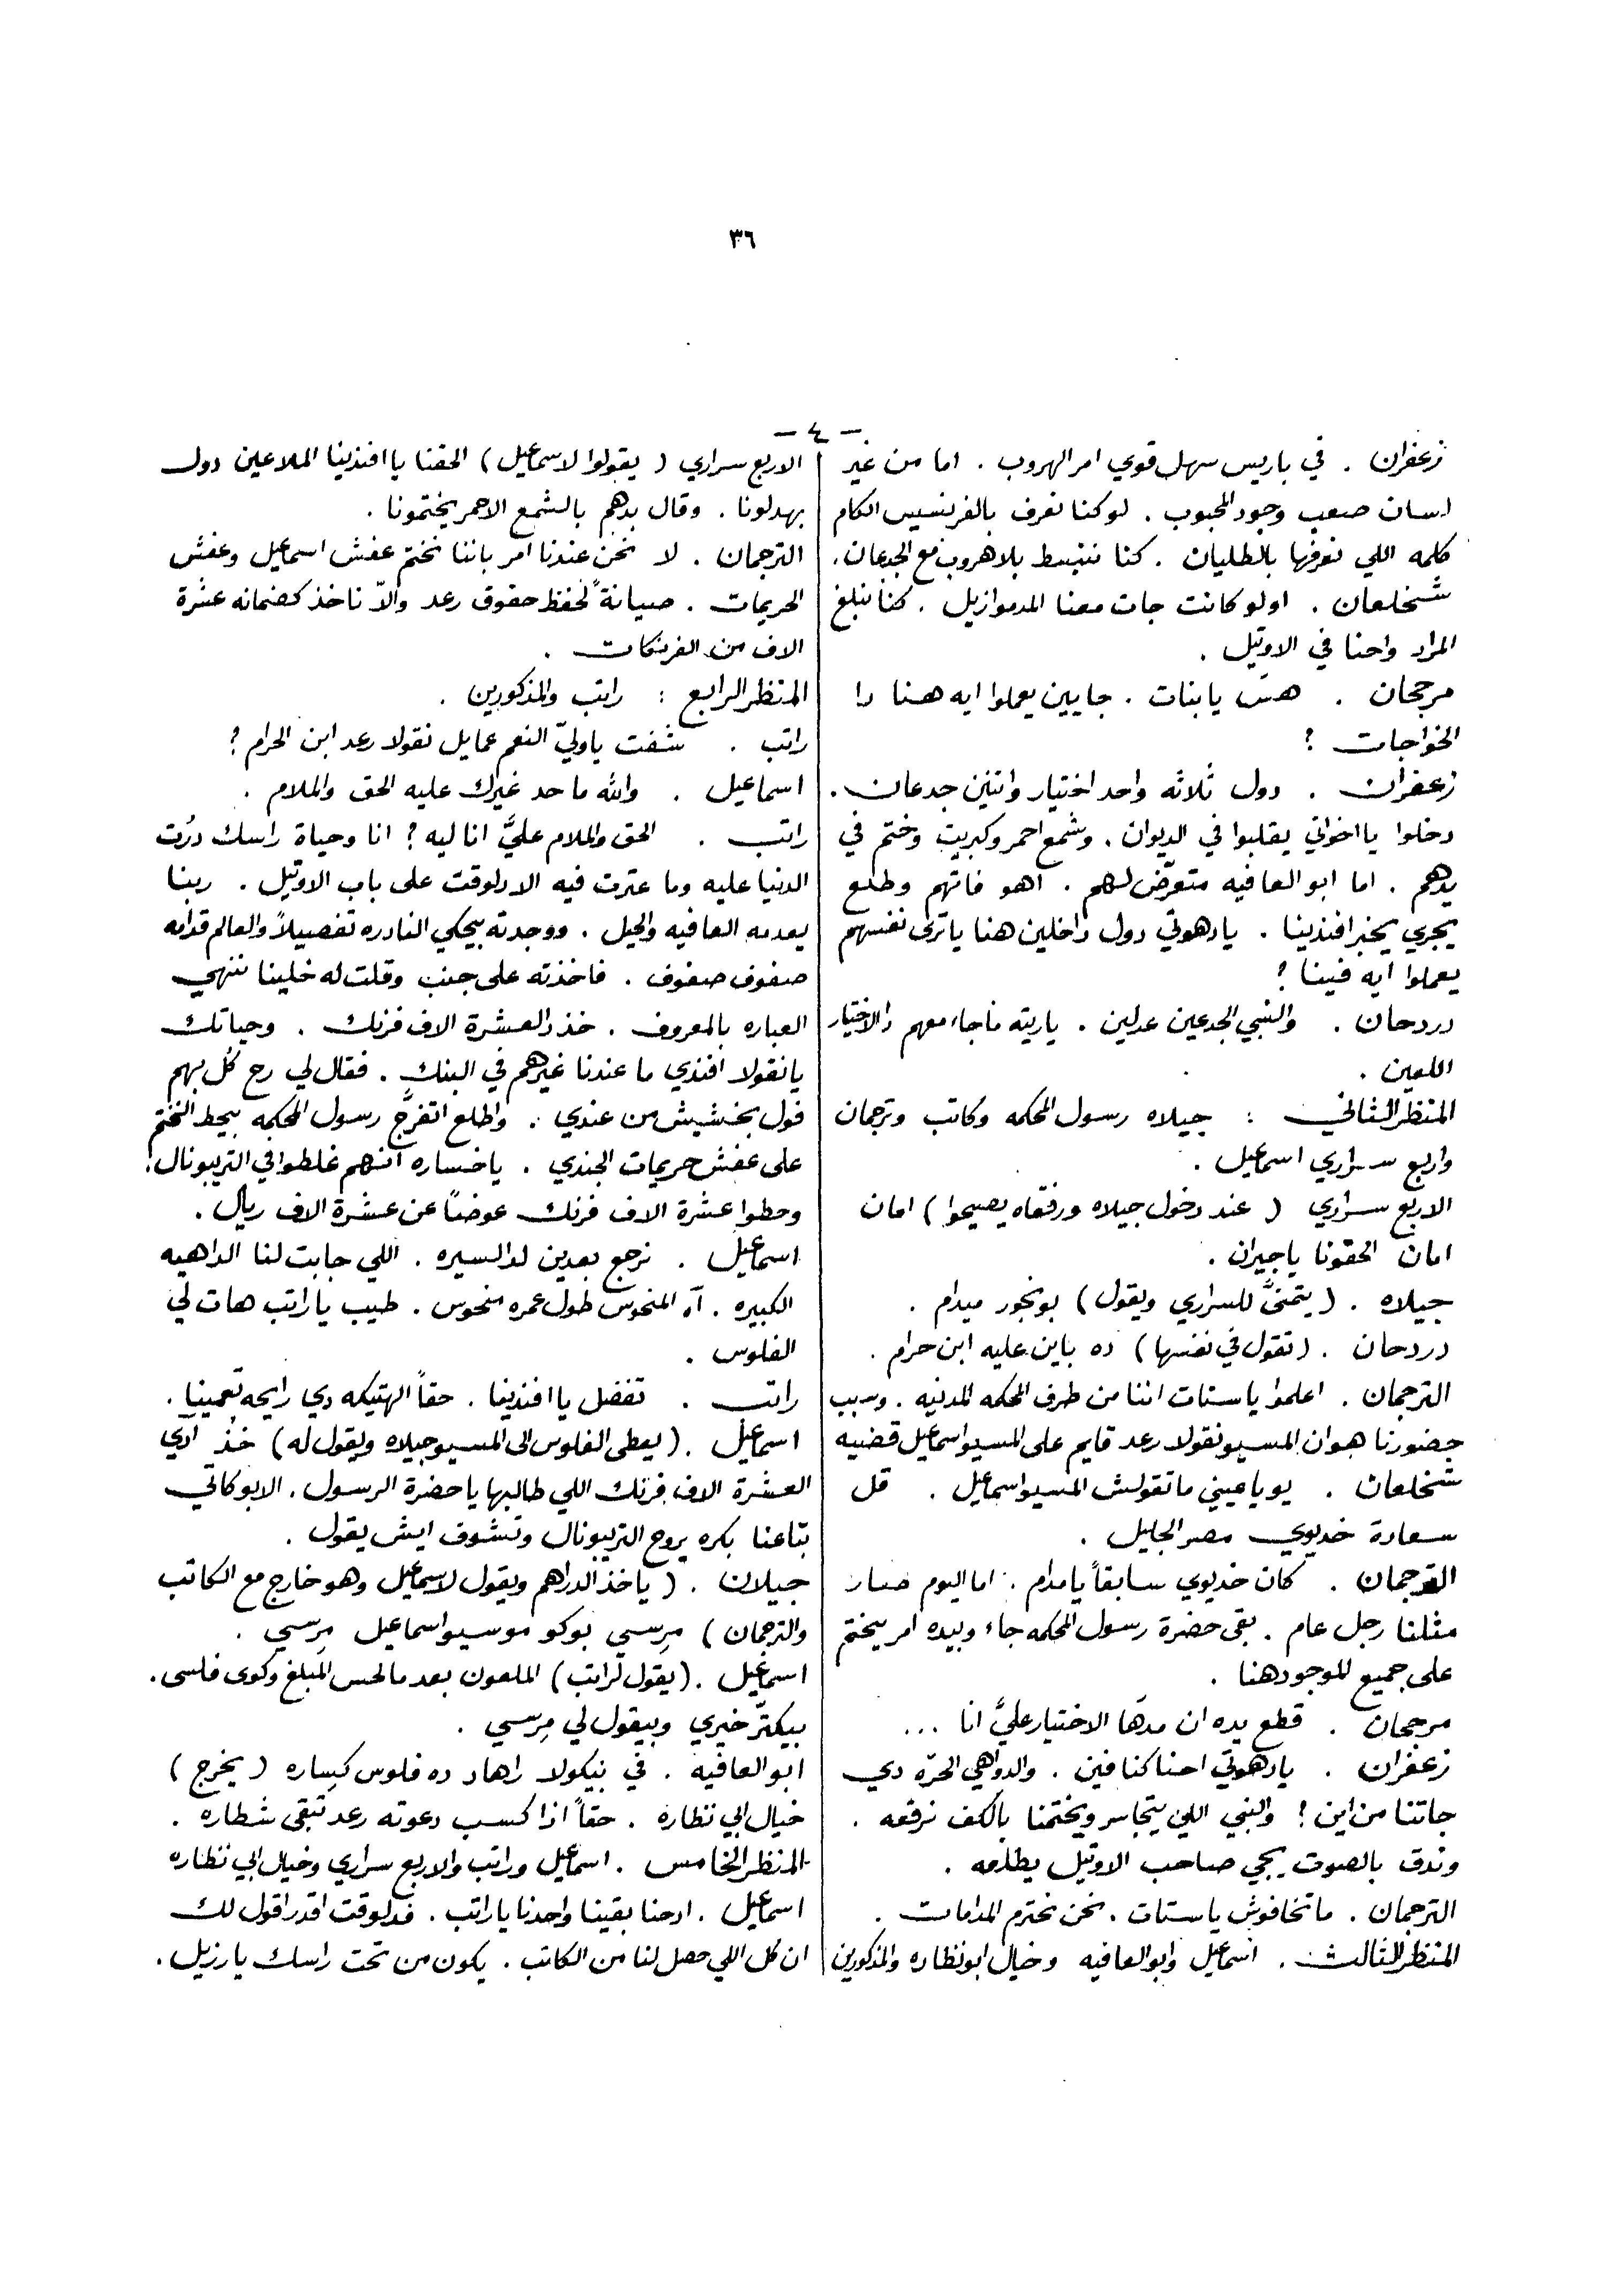 ٣٦
– ٤ –
زعفران . في باريس سهل قوي امر الهروب . اما من غير
لسان صعب وجود المحبوب . لو كنا نعرف بالفرنسيس الكام
كلمه اللي نعرفها بالطليان . كنا ننبسط بلا هروب مع الجدعان .
شخلعان . اولو كانت جات معنا المدموازيل . كنا نبلغ
المراد واحنا في الاوتيل .
مرجحان . هسّ يا بنات . جايين يعملوا ايه هنا دا
الخواجات ؟
زعفران . دول ثلاثه واحد اختيار واتنين جدعان .
دخلوا يا اخواتي يقلبوا في الديوان . وشمع احمر وكبريت وختم في
يدهم . اما ابو العافيه متعرّض لهم . اهو فاتهم وطلع
يجري يخبر افندينا . يا دهوتي دول داخلين هنا يا ترى نفسهم
يعملوا ايه فينا ؟
دردحان . والنبي الجدعين عدلين . ياريته ما جاء معهم دالاختيار
اللعين .
المنظر الثاني : جيلاه رسول المحكمه وكاتب وترجمان
واربع سراري اسماعيل .
الاربع سراري ( عند دخول جيلاه ورفقاه يصيحوا ) امان
امان الحقونا يا جيران .
جيلاه . ( يتمنّى للسراري ويقول ) بونجور ميدام .
دردحان . ( تقول في نفسها ) ده باين عليه ابن حرام .
الترجمان . اعلموا يا ستات اننا من طرف المحكمه المدنيه . وسبب
حضورنا هو ان المسيو نقولا رعد قايم على المسيو اسماعيل قضيه
شخلعان . يويا عيني ما تقولش المسيو اسماعيل . قل
سعادة خديوي مصر الجليل .
الترجمان . كان خديوي سابقاً يا مدام . اما اليوم صار
مثلنا رجل عام . بقى حضرة رسول المحكمه جاء وبيده امر يختم
على جميع الموجود هنا .
مرجحان . قطع يده ان مدّها الاختيار عليّ انا ...
زعفران . يا دهوتي احنا كنا فين . والدواهي الحرّه دي
جاتنا من اين ؟ والنبي اللي يتجاسر ويختمنا بالكف نرقعه .
وندق بالصوت يجي صاحب الاوتيل يطلعه .
الترجمان . ما تخافوش يا ستات . نحن نحترم المدامات .
المنظر الثالث . اسماعيل وابو العافيه وخيال ابو نظاره والمذكورين
الاربع سراري ( يقولوا لاسماعيل ) الحقنا يا افندينا الملاعين دول
بهدلونا . وقال بدهم بالشمع الاحمر يختمونا .
الترجمان . لا نحن عندنا امر باننا نختم عفش اسماعيل وعفش
الحريمات . صيانةً لحفظ حقوق رعد والاّ ناخذ كضمانه عشرة
الاف من الفرنكات .
المنظر الرابع : راتب والمذكورين .
راتب . شفت يا وليّ النعم عمايل نقولا رعد ابن الحرام ؟
اسماعيل . والله ما حد غيرك عليه الحق والملام .
راتب . الحق والملام عليَّ انا ليه ؟ انا وحياة راسك درُت
الدنيا عليه وما عترت فيه الا دلوقت على باب الاوتيل . ربنا
يعدمه العافيه والحيل . ووجدته بيحكي النادره تفصيلاً والعالم قدامه
صفوف صفوف . فاخذته على جنب وقلت له خلينا ننهي
العباره بالمعروف . خذ العشرة الاف فرنك . وحياتك
يا نقولا افندي ما عندنا غيرهم في البنك . فقال لي رح كُل بهم
فول بخشيش من عندي . واطلع اتفرَّج رسول المحكمه بيحط الختم
على عفش حريمات الجندي . يا خساره انهم غلطوا في التريبونال .
وحطوا عشرة الاف فرنك عوضاً عن عشرة الاف ريال .
اسماعيل . نرجع بعدين لدالسيره . اللي جابت لنا الداهيه
الكبيره . آه المنحوس طول عمره منحوس . طيب يا راتب هات لي
الفلوس .
راتب . تفضل يا افندينا . حقاً الهتيكه دي رايحه تعمينا .
اسماعيل . ( يعطى الفلوس الى المسيو جيلاه ويقول له ) خُذ ادي
العشرة الاف فرنك اللي طالبها يا حضرة الرسول . الابوكاتي
بتاعنا بكره يروح التريبونال وتشوف ايش يقول .
جيلان . ( ياخذ الدراهم ويقول لاسماعيل وهو خارج مع الكاتب
والترجمان ) مِرسي بوكو موسيو اسماعيل مِرسي .
اسماعيل . ( يقول لراتب ) الملعون بعد ما لحس المبلغ وكوى فلسى .
بيكتّر خيري وبيقول لي مِرسي .
ابو العافيه . في نيكولا راهاد ده فلوس كساره ( يخرج )
خيال ابي نظاره . حقاً اذا كسب دعوته رعد تبقى شطاره .
المنظر الخامس . اسماعيل وراتب والاربع سراري وخيال ابي نظاره
اسماعيل . ادحنا بقينا واحدنا يا راتب . فدلوقت اقدر اقول لك
ان كل اللي حصل لنا من الكاتب . يكون من تحت راسك يا رزيل .